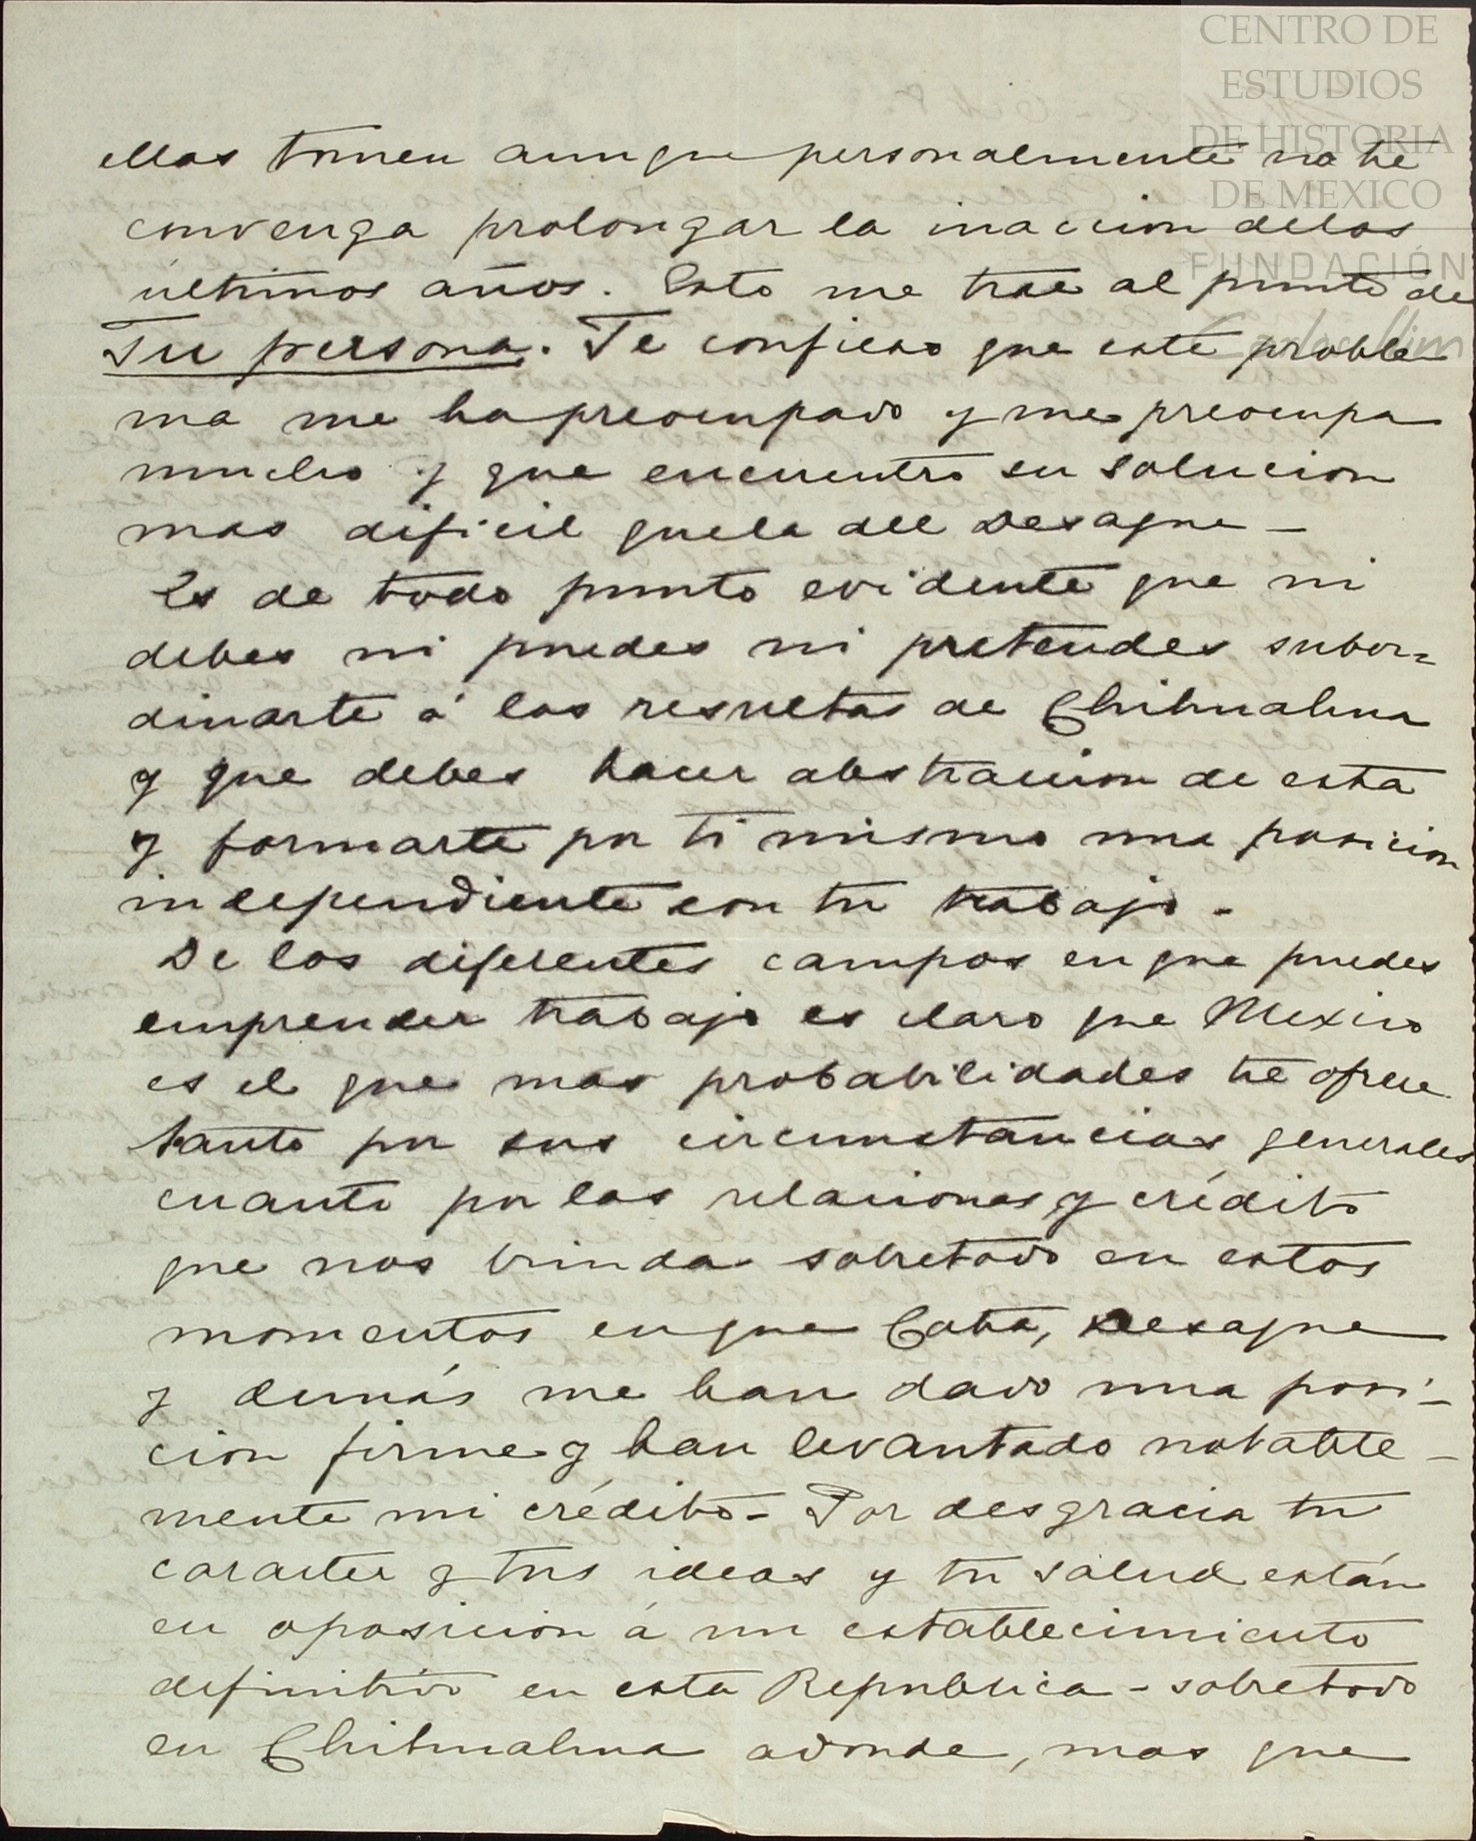 CENTRO DE
ESTUDIOS
DE HISTORIA
DE MEXICO
FUNDACIÓN
Carlos Slim
ellas tomen aunque personalmente no te
convenga prolongar la inaccion delos
últimos años. Esto me trae al punto de
Tu persona. Te confieso que este proble
ma me ha preocupado y me preocupa
mucho y que encuentro su solucion
mas dificil quela del Desague –
Es de todo punto evidente que ni
debes ni puedes ni pretendes subor=
dinarte á las resultas de Chihuahua
y que debes hacer abstraccion de esta
y formarte por ti mismo una posicion
independiente con tu trabajo –
De los diferentes campos en que puedes
emprender trabajo es claro que Mexico
es el que mas probabilidades te ofrece
tanto por sus circunstancias generales
cuanto por las relaciones y crédito
que nos brinda sobretodo en estos
momentos en que Cata, Desague
y demás me han dado una posi-
cion firme y han levantado notable-
mente mi crédito – Por desgracia tu
caracter y tus ideas y tu salud están
en oposicion á un establecimiento
definitivo en esta Republica – sobretodo
en Chihuahua adonde, mas que